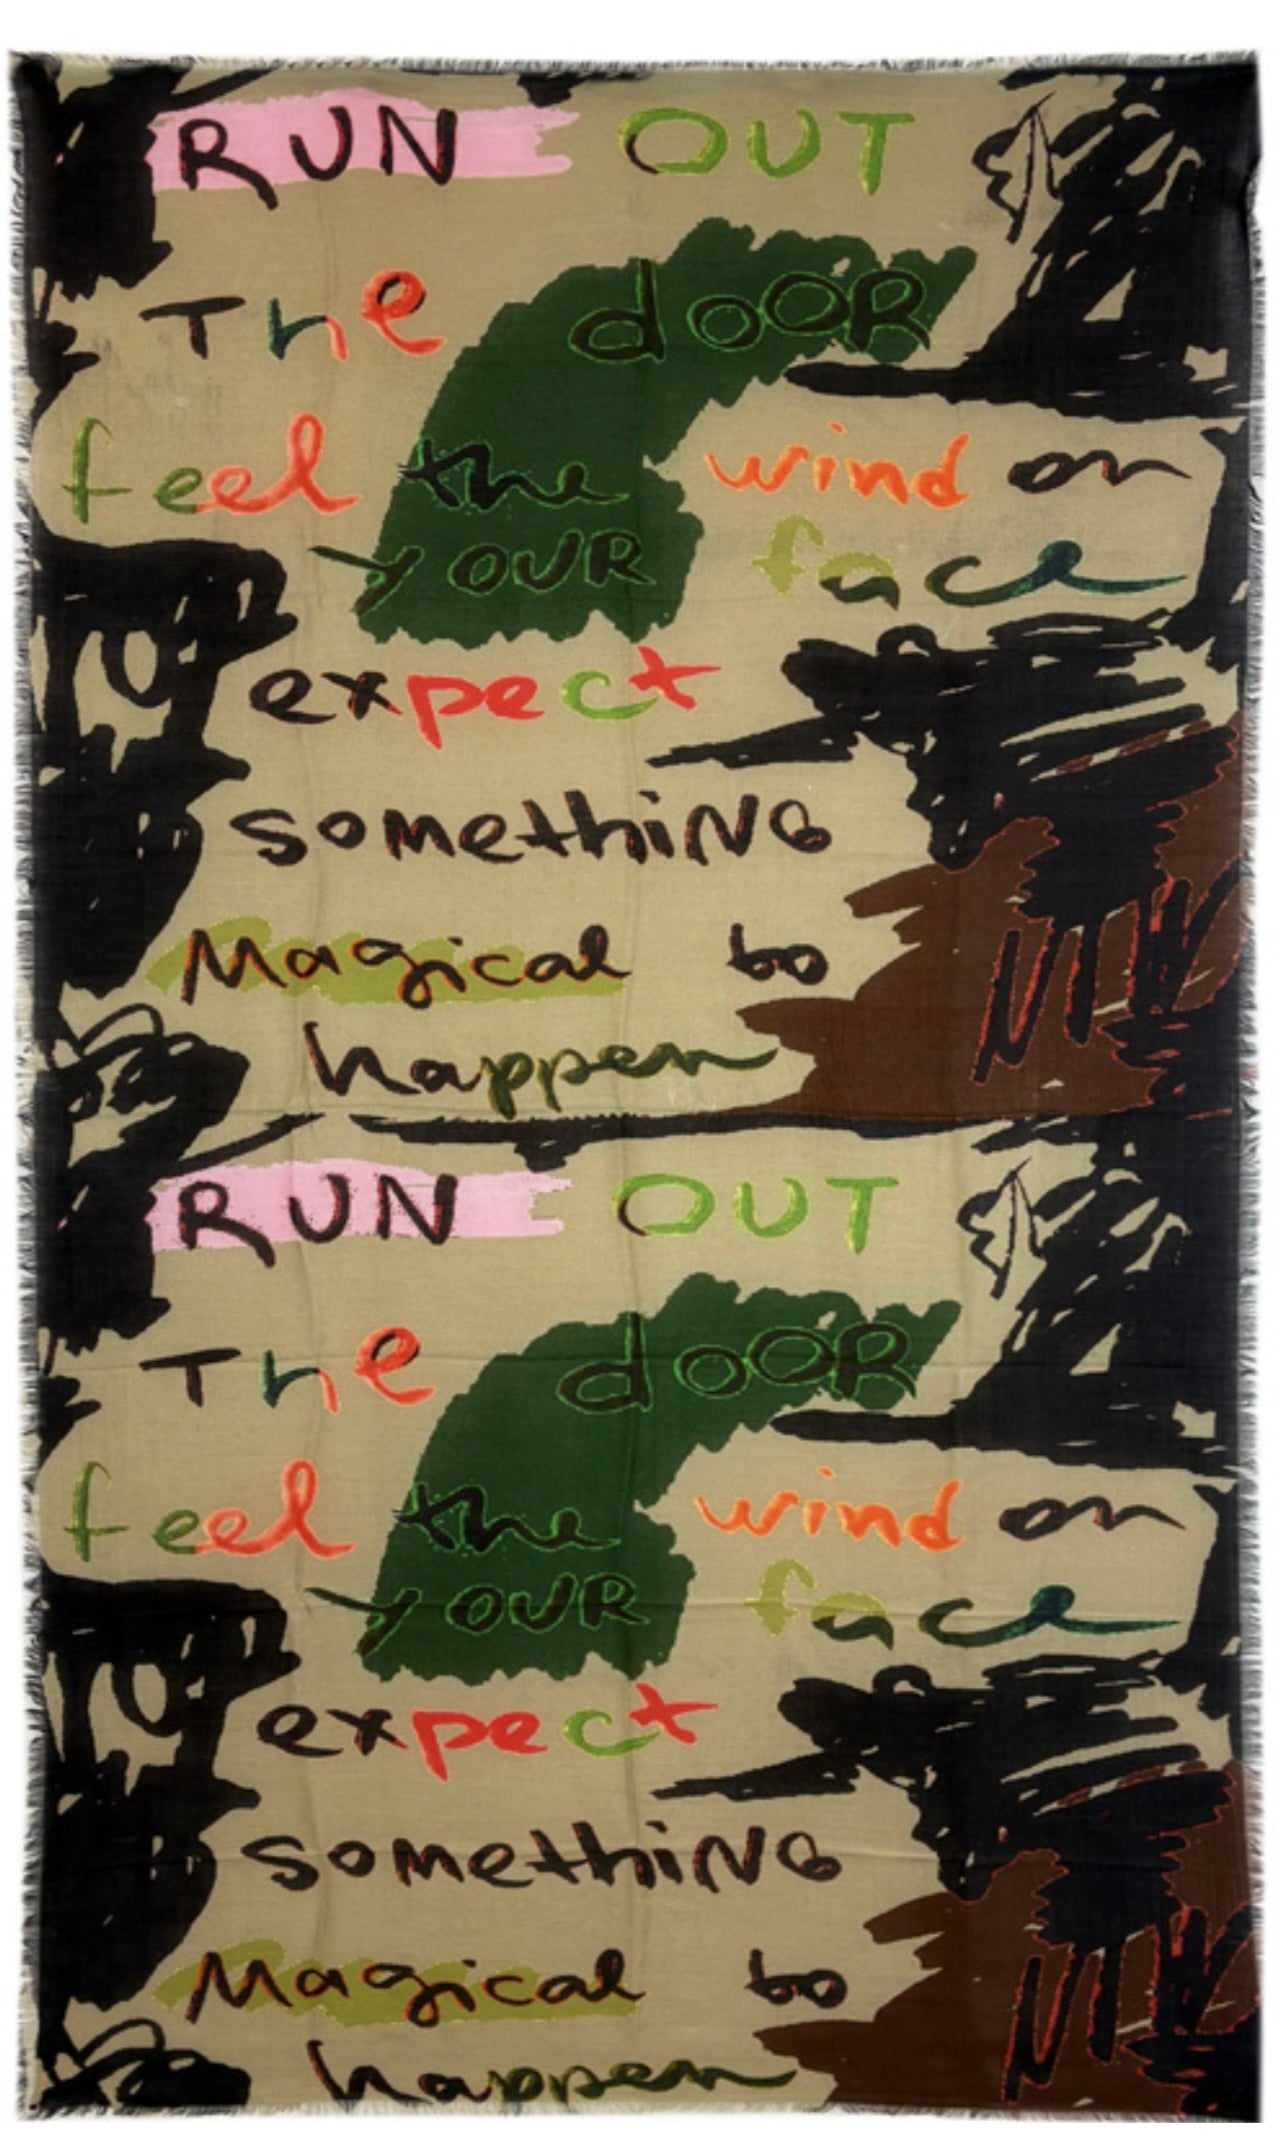 RUN OUT
The dooR
feel the wind on
YOUR face
expect
somethiNG
Magical to
happen
RUN OUT
The dooR
feel the wind on
YOUR face
expect
somethiNG
Magical to
happen